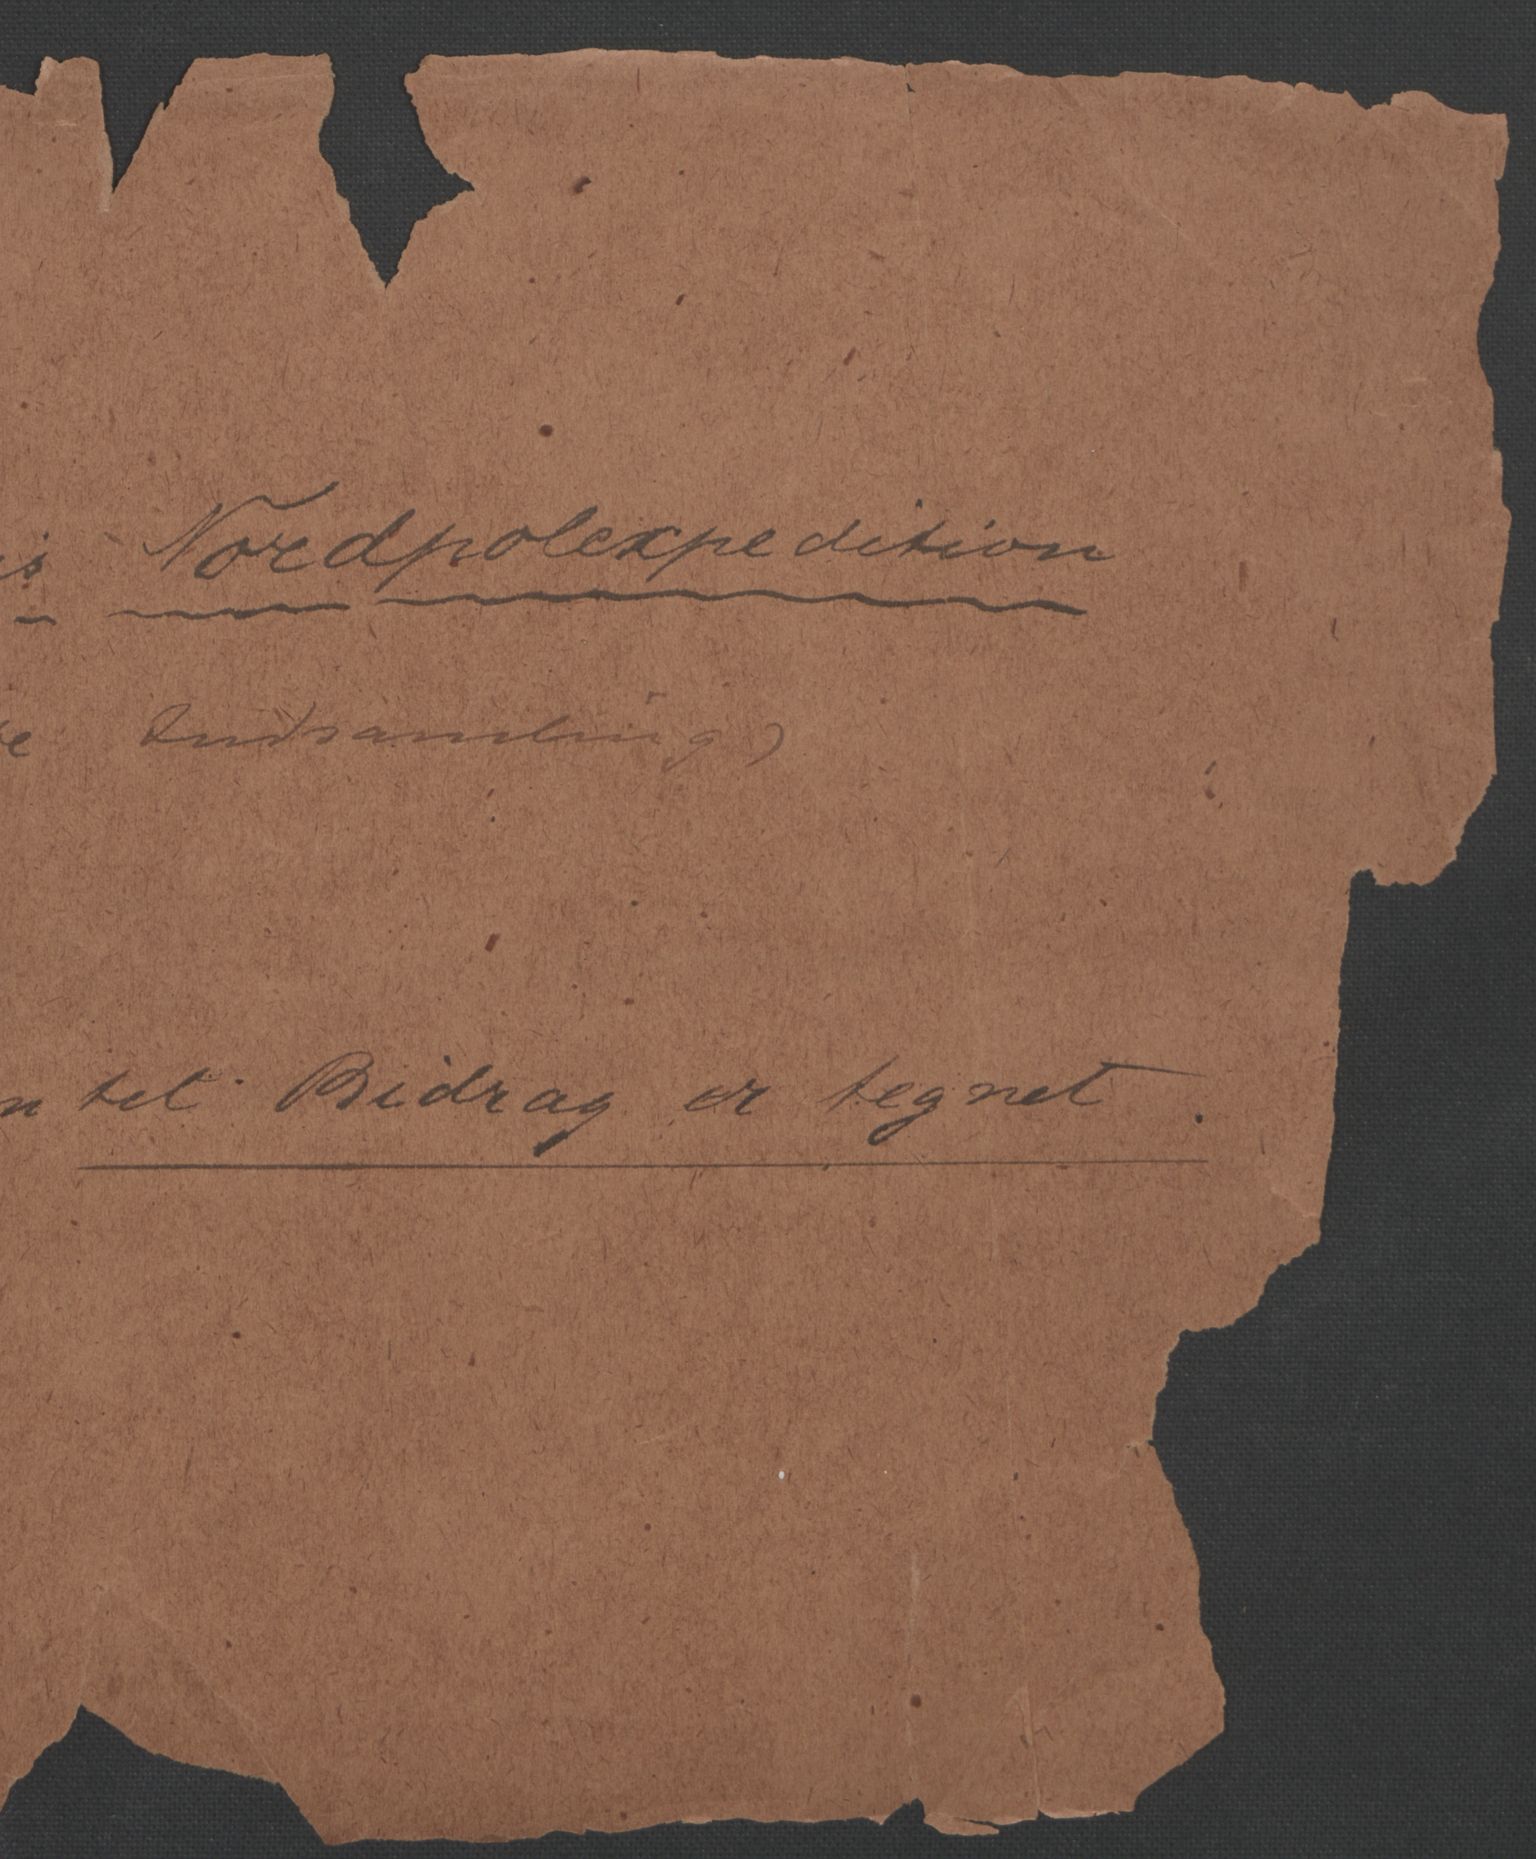 is Nordpolexpedition
te Indsamling)
n tet Bidrag er tegnet.